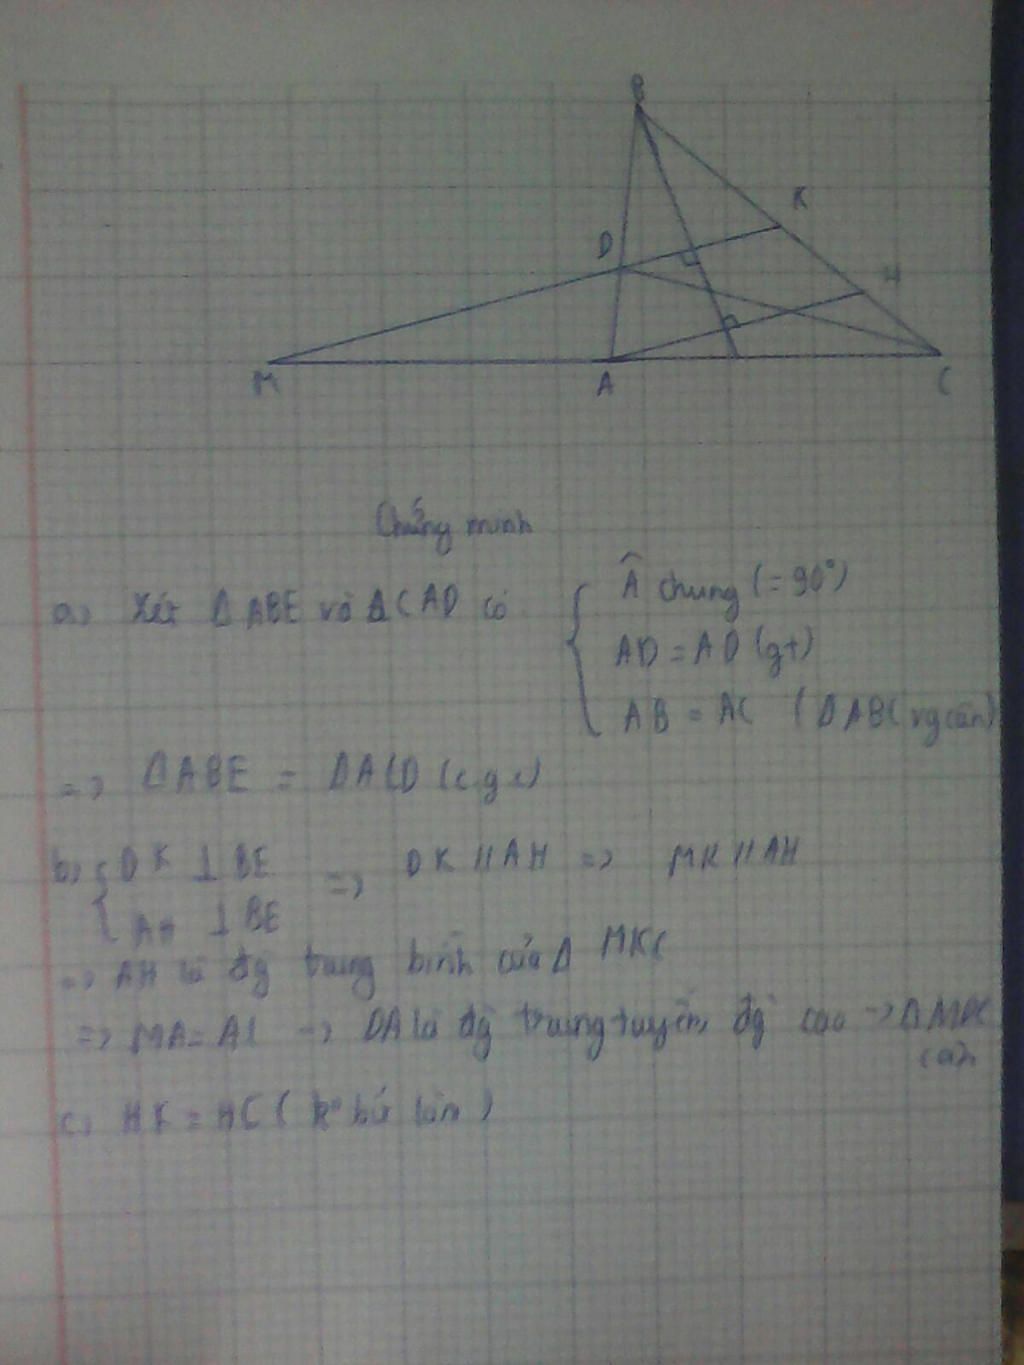 B
K
D
H
M
A
C
Chứng minh
a) Xét ΔABE và ΔCAD có
Â chung (=90°)
AD = AD (gt)
AB = AC (ΔABC vg cân)
=> ΔABE = ΔACD (c.g.c)
b) DK ⊥ BE => DK // AH => MK // AH
AH ⊥ BE
=> AH là đg trung bình của Δ MKC
=> MA = AC -> DA là đg trung tuyến, đg cao -> ΔMDC
cân
c) HK = HC (